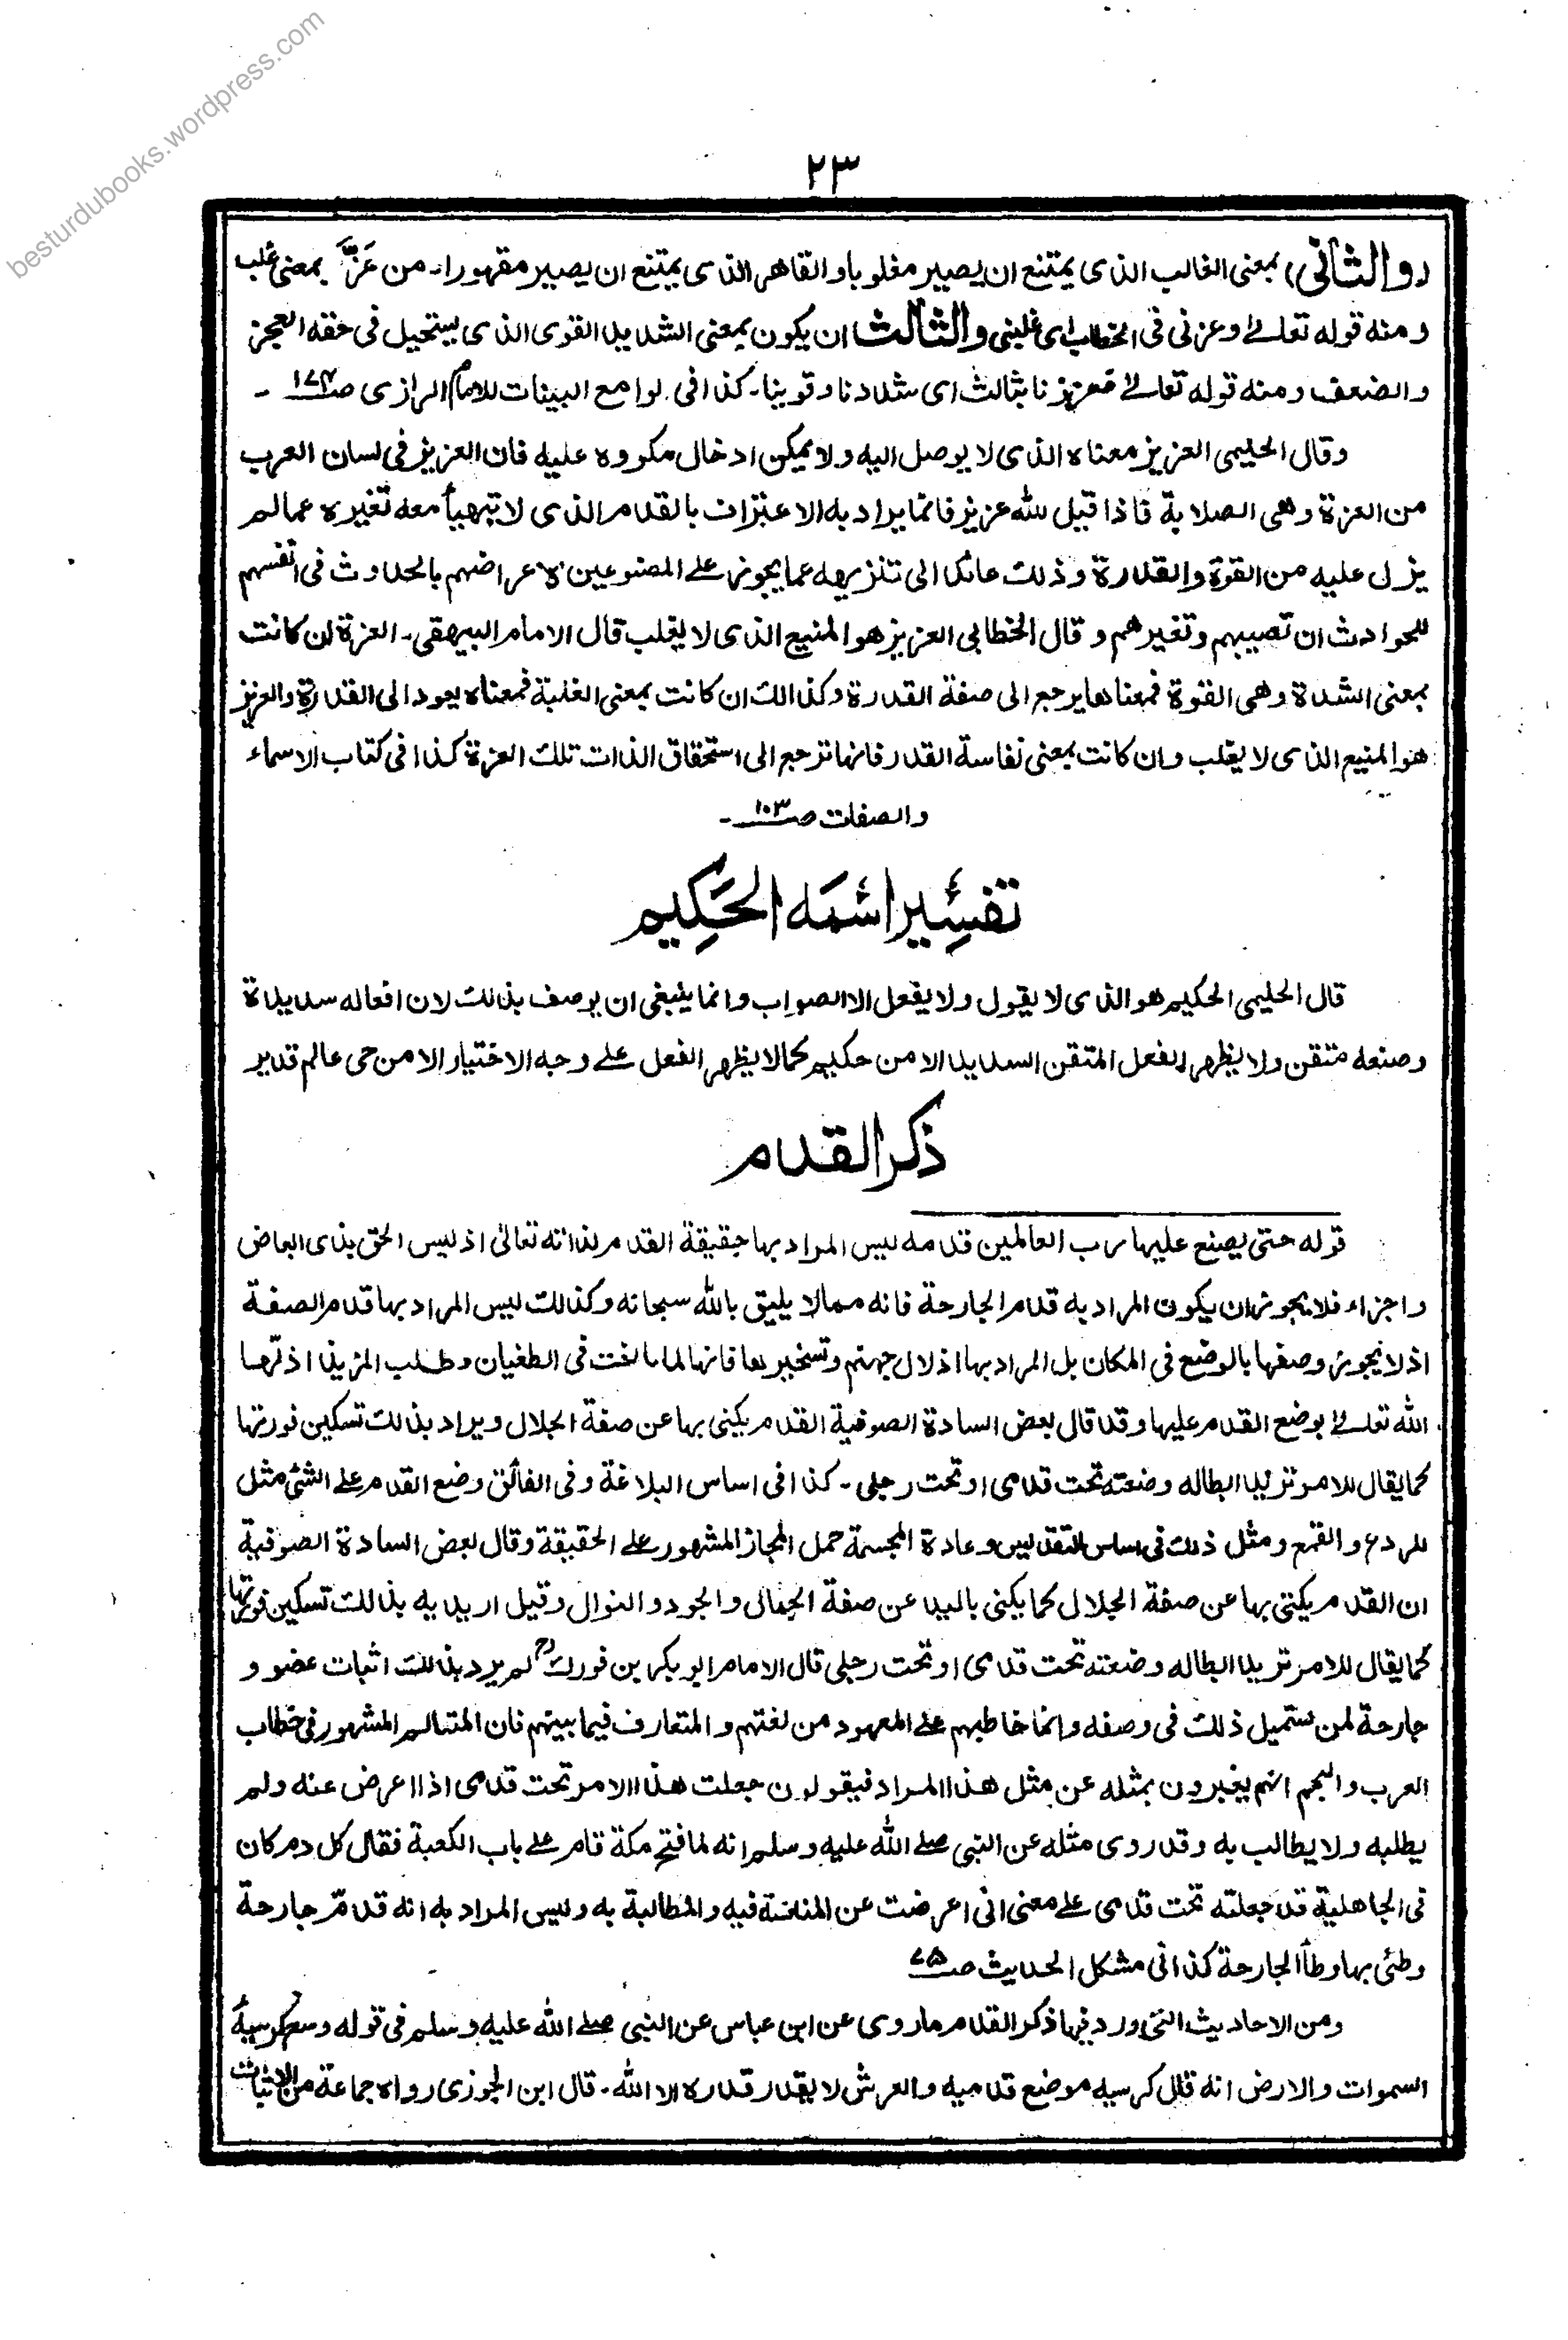 besturdubooks.wordpress.com
٢٣
(والثانى) بمعنى الغالب الذى يمتنع ان يصير مغلوبا و القاهر الذى يمتنع ان يصير مقهورا۔ من عَزَّ بمعنى غلب
ومنه قوله تعالى وعزنى فى الخطاب اى غلبنى والثالث ان يكون بمعنى الشديد القوى الذى يستحيل فى حقه العجز
والضعف ومنه قوله تعالى فعززنا بثالث اى شددنا وقوينا۔ كذا فى لوامع البينات للامام الرازى صـ ۱۷۴ ۔
وقال الحليمى العزيز معناه الذى لا يوصل اليه ولا يمكن ادخال مكروه عليه فان العزيز فى لسان العرب
من العزة وهى الصلابة فاذا قيل لله عزيز فانما يراد به الاعتراف بالقدم الذى لا تتهيأ معه تغيره عما لم
يزل عليه من القوة والقدرة وذلك عائد الى تنزيهه عما يجوز على المصنوعين لاعراضهم بالحدوث فى انفسهم
للحوادث ان تصيبهم وتغيرهم و قال الخطابى العزيز هو المنيع الذى لا يغلب قال الامام البيهقى۔ العزة ان كانت
بمعنى الشدة وهى القوة فمعناها يرجع الى صفة القدرة وكذالك ان كانت بمعنى الغلبة فمعناه يعود الى القدرة والعزيز
هو المنيع الذى لا يغلب وان كانت بمعنى نفاسة القدر فانها ترجع الى استحقاق الذات تلك العزة كذا فى كتاب الاسماء
والصفات صـ ۱۰۳ ۔
تفسير اسمه الحكيم
قال الحليمى الحكيم هو الذى لا يقول ولا يفعل الا الصواب وانما ينبغى ان يوصف بذالك لان افعاله سديدة
وصنعه متقن ولا يظهر الفعل المتقن السديد الا من حكيم كما لا يظهر الفعل على وجه الاختيار الا من حى عالم قدير
ذكر القدم
قوله حتى يضع عليها رب العالمين قدمه ليس المراد بها حقيقة القدم لذاته تعالى اذ ليس الحق بذى ابعاض
واجزاء فلا يجوز ان يكون المراد به قدم الجارحة فانه مما لا يليق بالله سبحانه وكذالك ليس المراد بها قدم الصفة
اذ لا يجوز وصفها بالوضع فى المكان بل المراد بها اذلال جهنم وتسخيرها فانها لما بالغت فى الطغيان وطلب المزيد اذلّها
الله تعالى بوضع القدم عليها وقد قال بعض السادة الصوفية القدم يكنى بها عن صفة الجلال ويراد بذالك تسكين فورتها
كما يقال للامر تريد ابطاله وضعته تحت قدمى او تحت رجلى۔ كذا فى اساس البلاغة وفى الفائق وضع القدم على الشئ مثل
للردع والقمع ومثل ذلك فى اساس التقديس وعادة المجسمة حمل المجاز المشهور على الحقيقة وقال بعض السادة الصوفية
ان القدم يكنى بها عن صفة الجلال كما يكنى باليد عن صفة الجمال والجود والنوال وقيل اريد به بذالك تسكين فورتها
كما يقال للامر تريد ابطاله وضعته تحت قدمى او تحت رجلى قال الامام ابو بكر بن فورك رح لم يرد بذالك اثبات عضو و
جارحة لمن يستحيل ذلك فى وصفه وانما خاطبهم على المعهود من لغتهم والمتعارف فيما بينهم فان المتسالم المشهور فى خطاب
العرب والعجم انهم يخبرون بمثله عن مثل هذا المراد فيقولون جعلت هذا الامر تحت قدمى اذا اعرض عنه ولم
يطلبه ولا يطالب به وقد روى مثله عن النبى صلى الله عليه وسلم انه لما فتح مكة قام على باب الكعبة فقال كل دم كان
فى الجاهلية قد جعلته تحت قدمى على معنى انى اعرضت عن المنافسة فيه والمطالبة به وليس المراد به انه قدمٌ جارحة
وطئى بها وطأ الجارحة كذا فى مشكل الحديث صـ ۷۵
ومن الاحاديث التى ورد فيها ذكر القدم ما روى عن ابن عباس عن النبى صلى الله عليه وسلم فى قوله وسع كرسيهُ
السموات والارض انه قال كرسيه موضع قدميه والعرش لا يقدر قدره الا الله۔ قال ابن الجوزى رواه جماعة من الاثبات